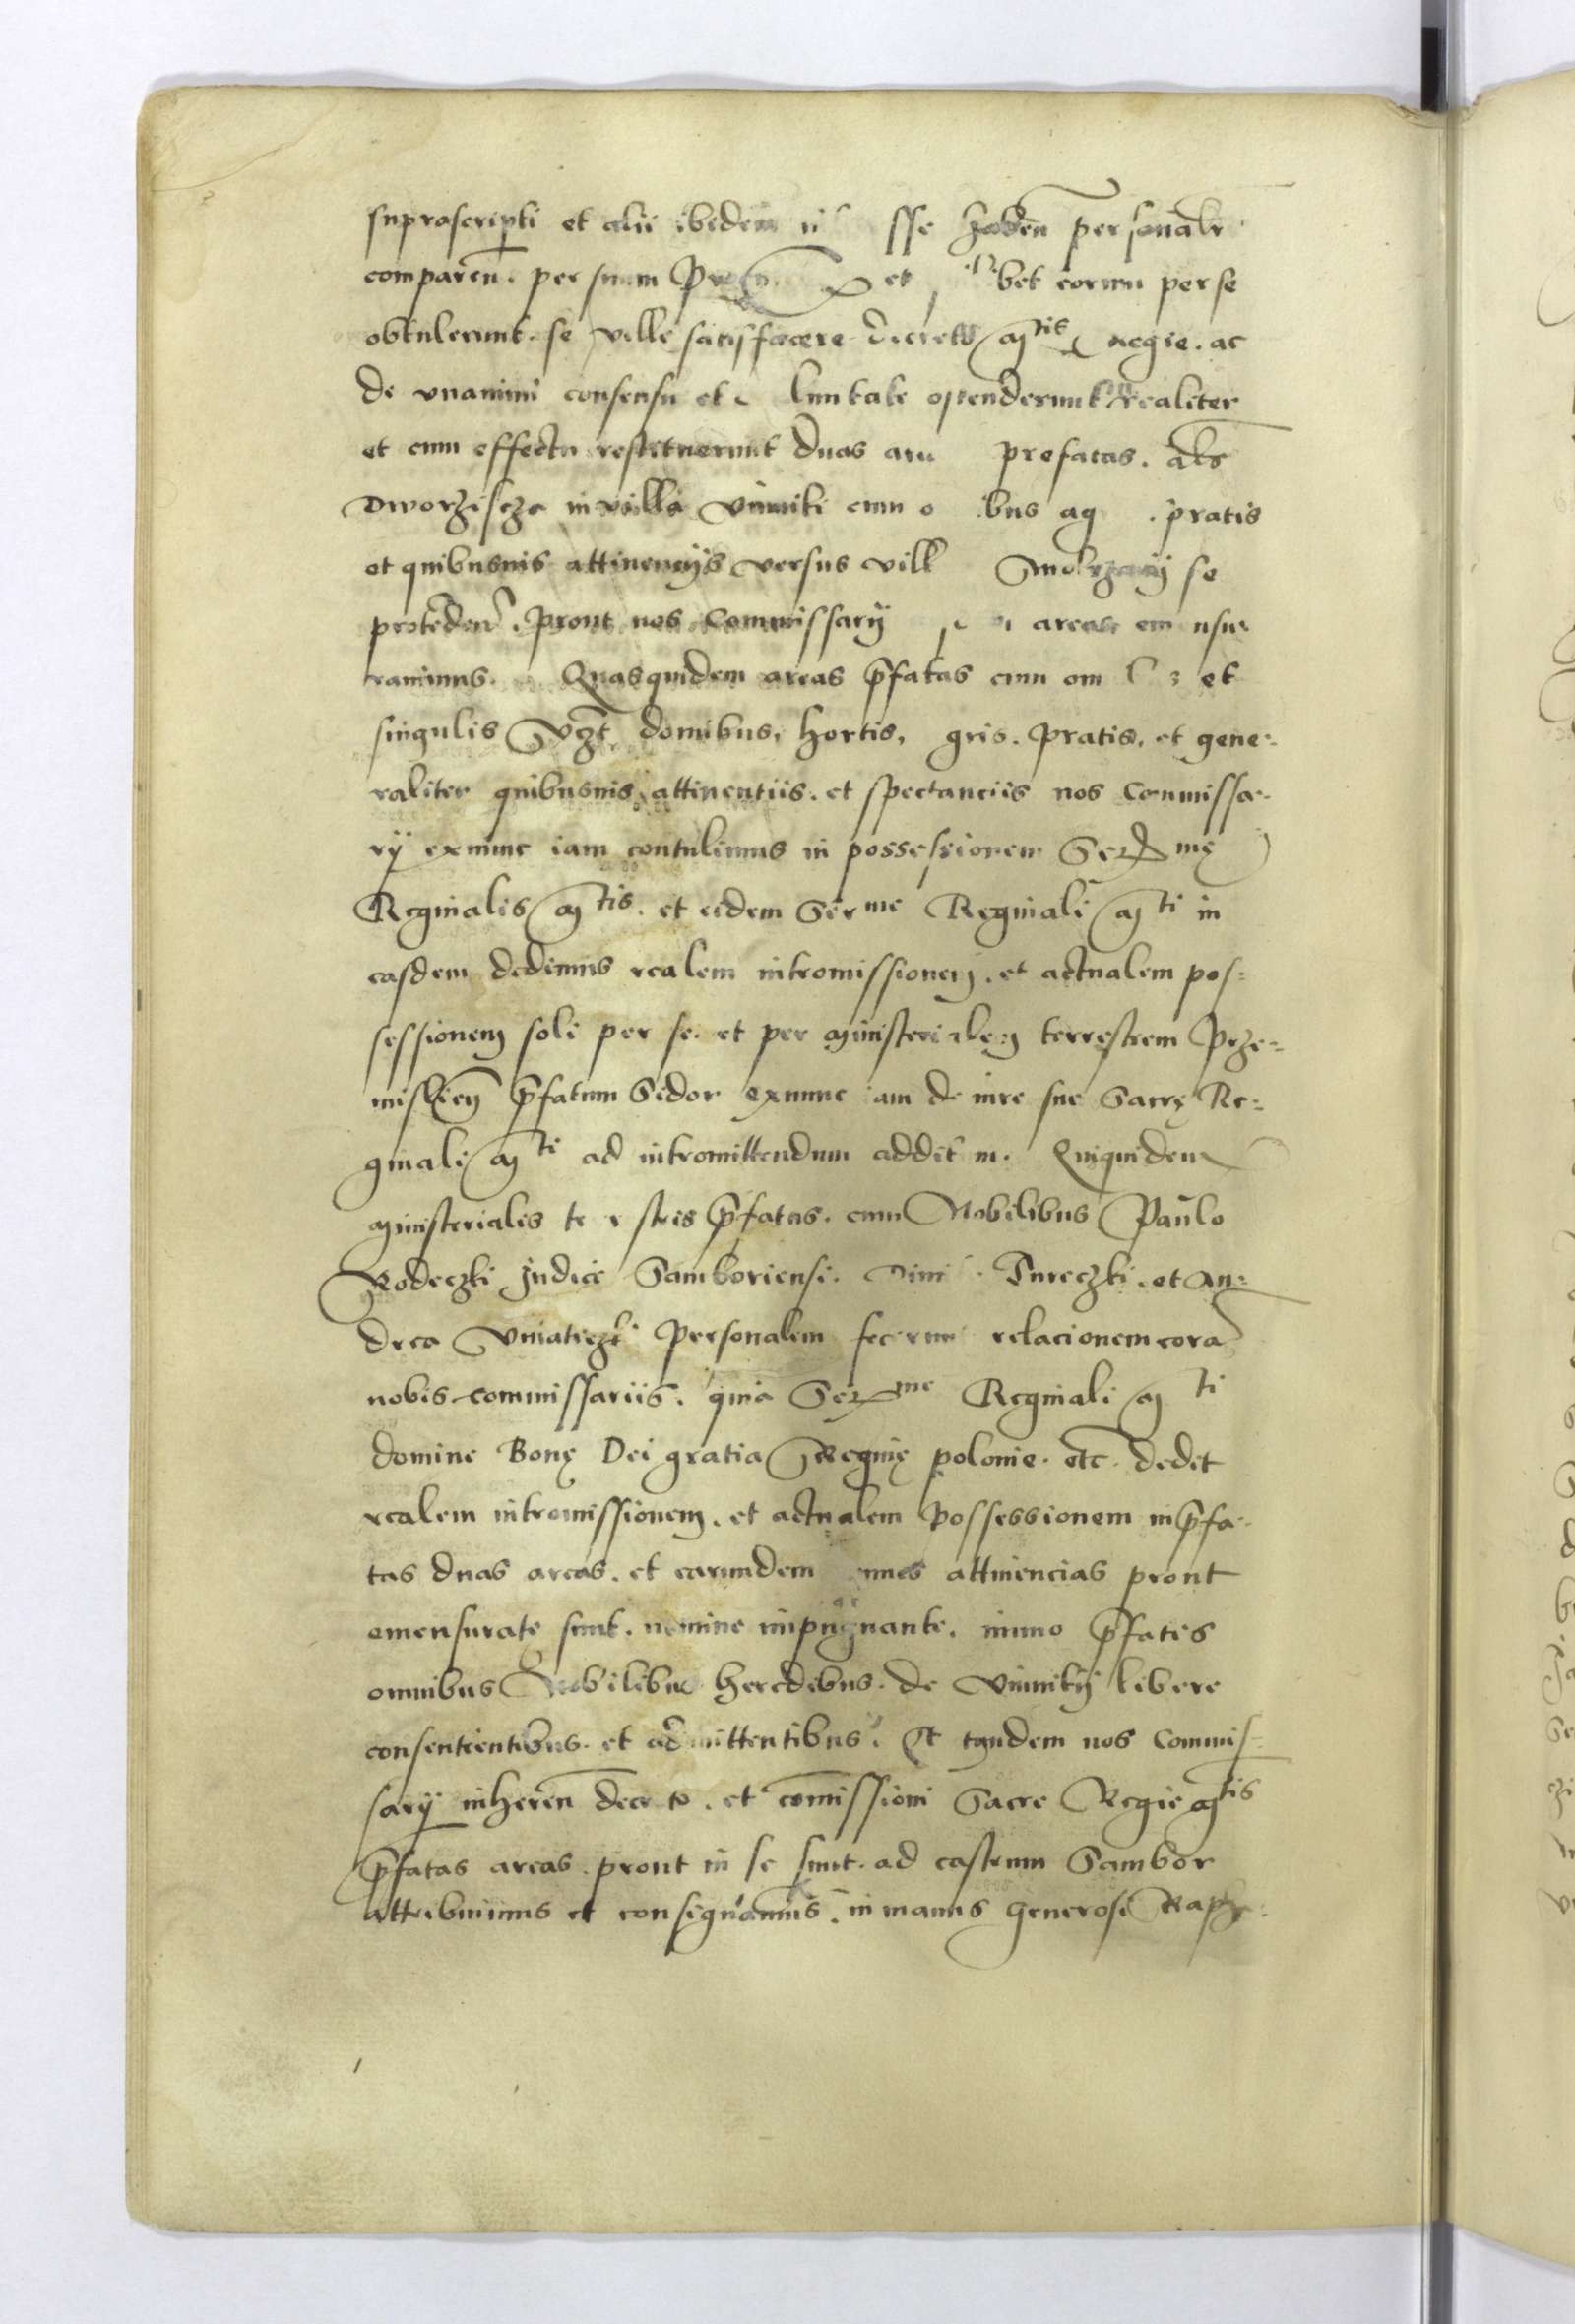 suprascripti et alii ibidem sse haben personalr
comparen. per suum et bet eorum per se
obtulerunt. se velle satisfacere decreto Mtis Regie. ac
de vnanimi consensu et luntate ostenderunt realiter
et cum effectu restituerunt duas prefatas. als
Dworziscza in villa Vniniki cum o ibus ag . pratis
et quibusuis attinencijs versus vill se
protēden. prout nos Commissarij areas em nsu
rauimus. Quasquidem areas p̄fatas cum om et
singulis Vz̄t domibus, hortis, gris. pratis, et gene-
raliter quibusuis attinentiis. et spectanciis nos Commissa-
rij exnunc iam contulimus in possessionem Serme
Reginalis Mtis. et eidem Serme Reginali Mti in
easdem dedimus realem intromissionem. et actualem pos=
sessionem soli per se. et per Ministerialem terrestrem Prze=
mislien p̄fatum Sidor exnunc iam de iure sue Sacre Re=
ginali Mti ad intromittendum addit m. Quiquidem
Ministerialis te r stris p̄fatus. cum Nobilibus Paulo
Rodeczki Judice Samboriensi. Tureczki. et An=
drea personalem fecerun relacionem cora
nobis commissariis. quia Serme Reginali Mti
domine Bone Dei gratia Regine polonie. etc. dedit
realem intromissionem. et actualem possessionem in p̄fa-
tas duas areas. et earundem mnes attinencias prout
emensurate sunt. nemine impugnante. immo p̄fatis
omnibus Nobilibus heredibus. de Vniniky libere
consentientibus. et admittentibus. Et tandem nos Commis=
sarij inheren decr to. et com̄issioni Sacre Regie Mtis
p̄fatas areas. prout in se sunt. ad castrum Sambor
attribuimus et consignamus. in manus Generosi Raph-